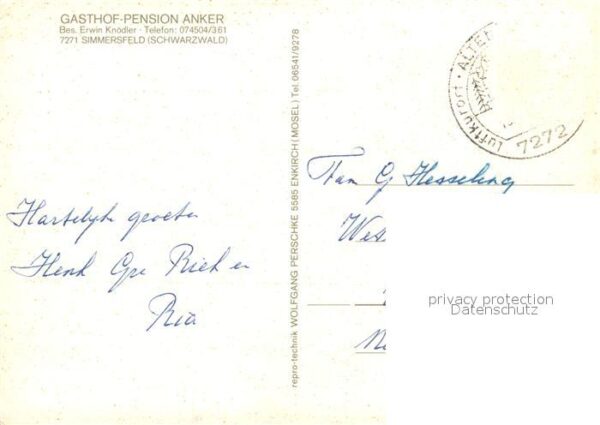 GASTHOF-PENSION ANKER
Bes. Erwin Knödler · Telefon: 074504/361
7271 SIMMERSFELD (SCHWARZWALD)
Hartelijke groeten
Henk Gre Riek en
Ria
repro-technik WOLFGANG PERSCHKE 5585 ENKIRCH (MOSEL) Tel. 06541/9278
Luftkurort · ALTE
7272
Fam G Hesseling
Wes
privacy protection
Datenschutz